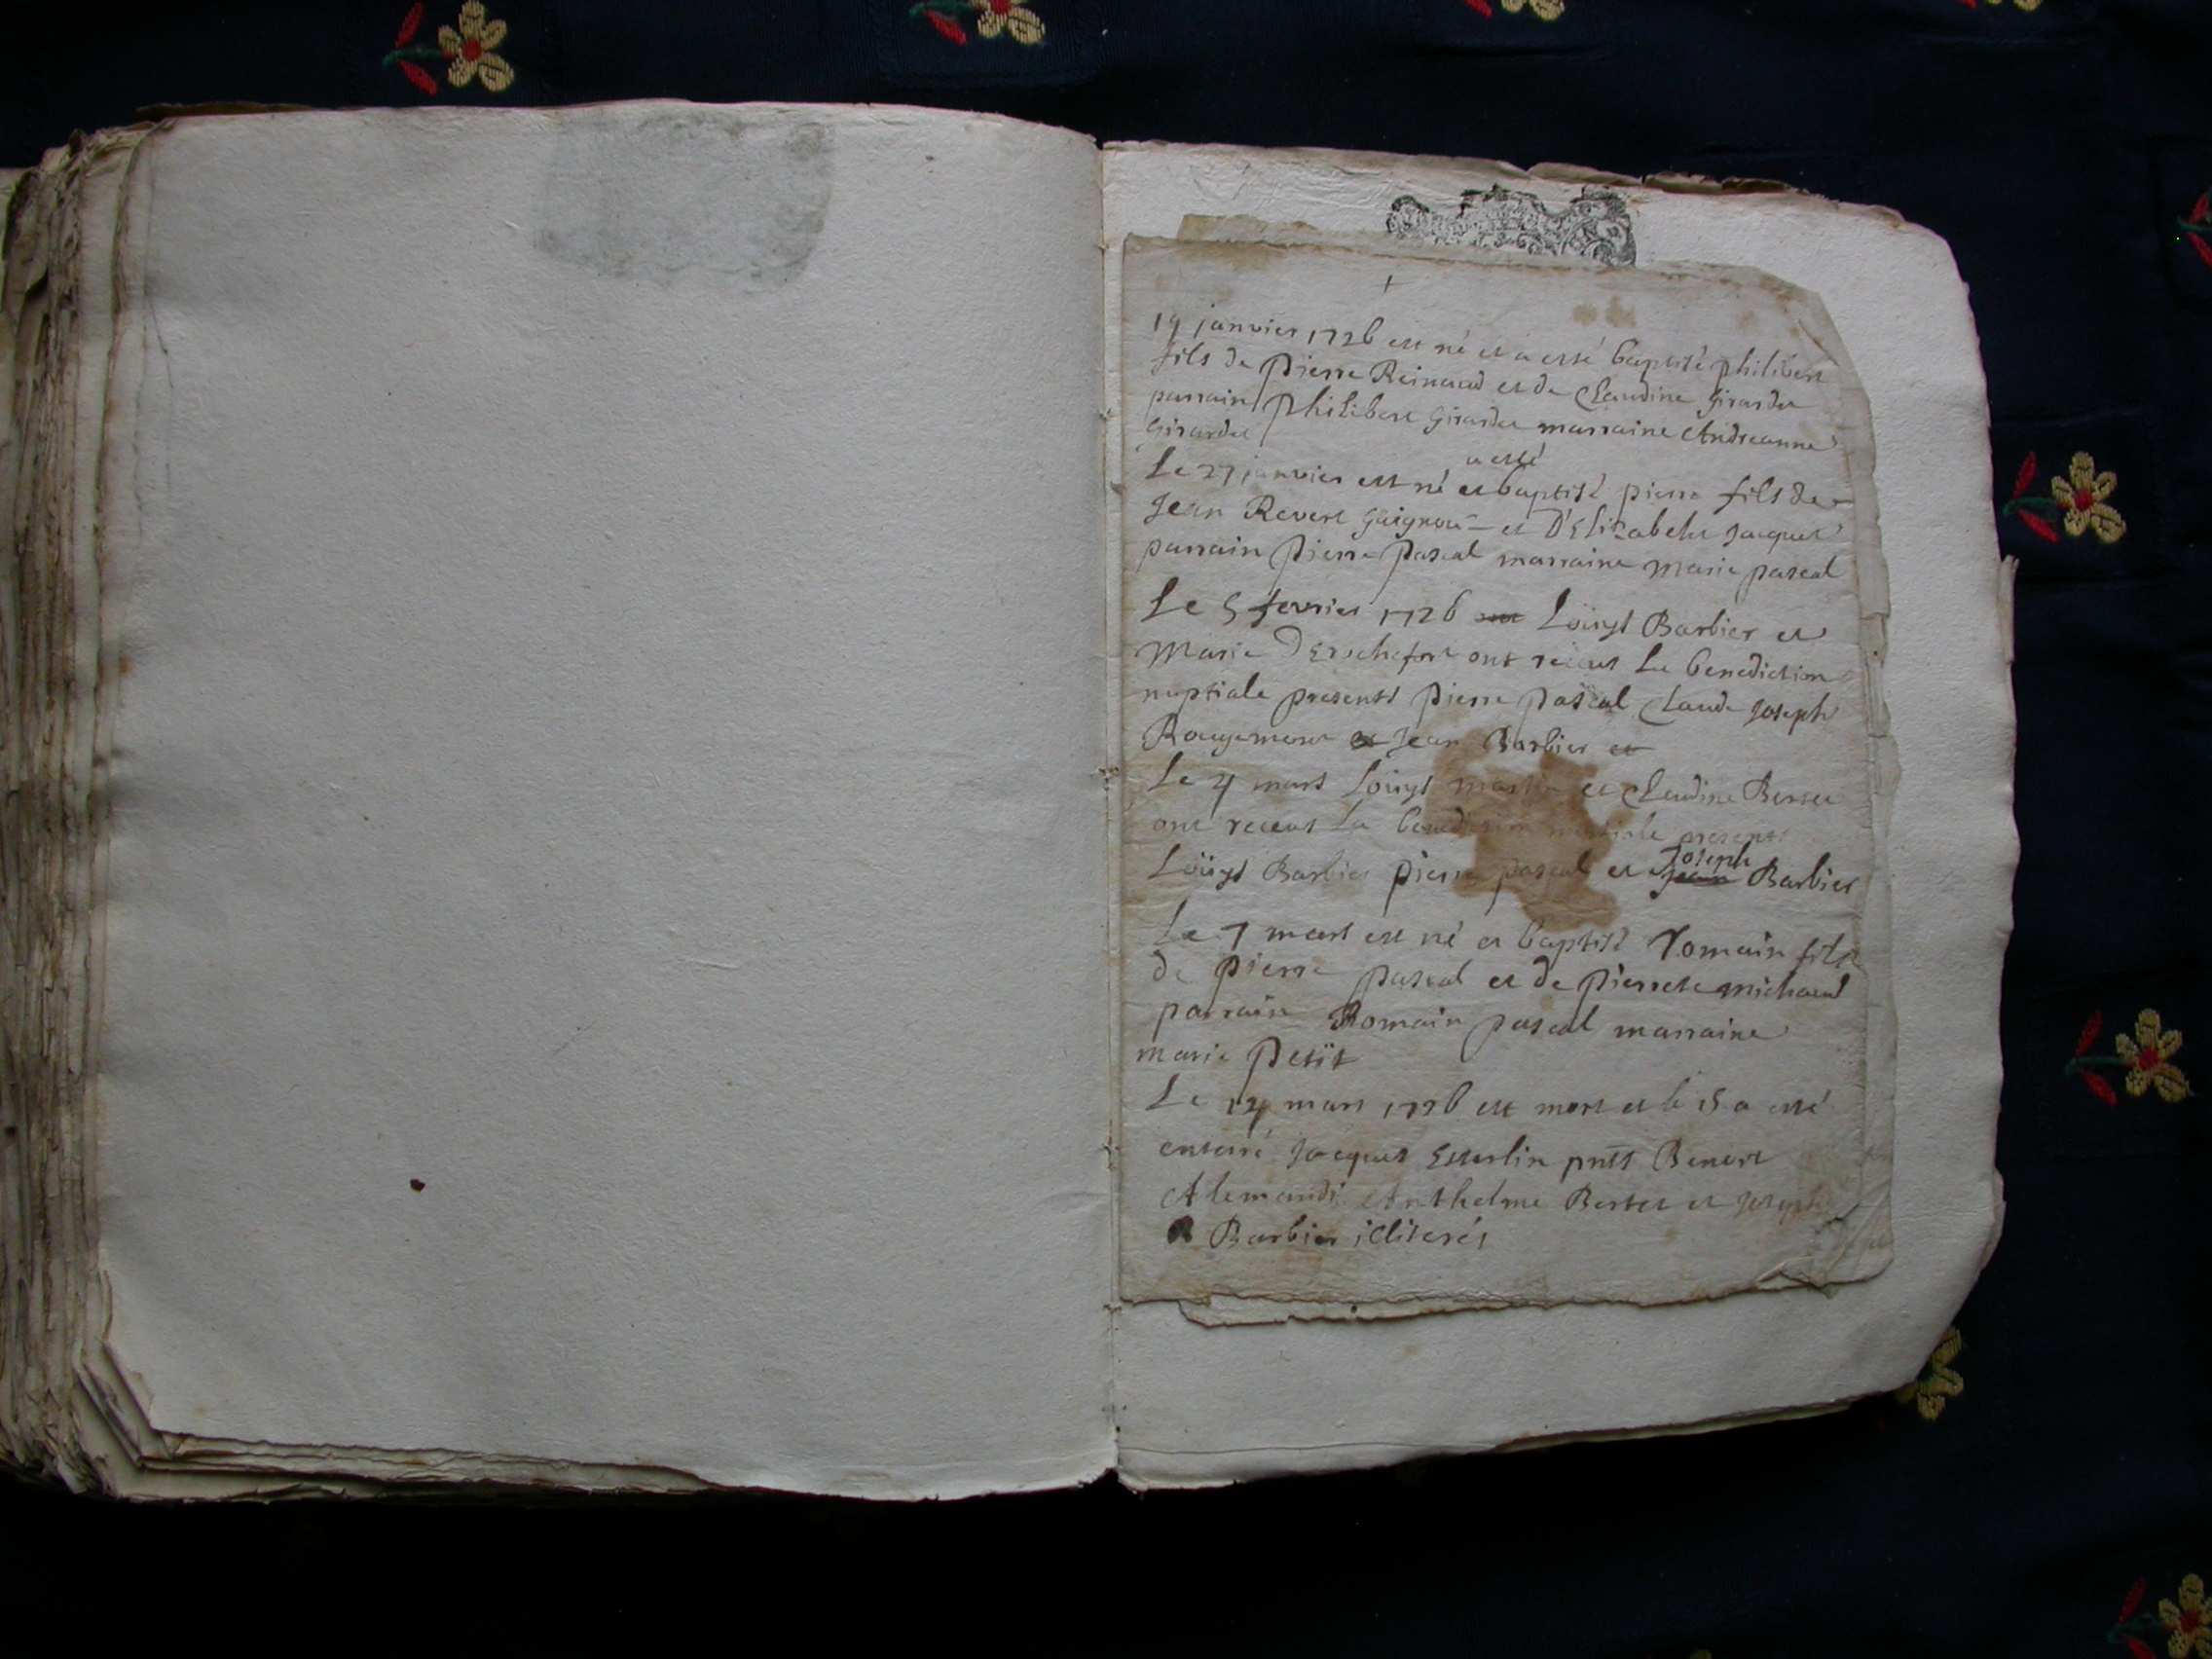 19 janvier 1726 est né et a esté baptisé philibert
fils de pierre Reinaud et de Claudine girardet
parrain philibert girardet marraine Andreanne
girardet
a esté
Le 27 janvier est né et baptisé pierre fils de
Jean Revert et D'Elizabeht Jacquet
parrain pierre pascal marraine marie pascal
Le 5 fevrier 1726 Loüys Barbier et
Marie ont receus la benediction
nuptiale presents pierre pascal Claude joseph
Rougemont et Jean Barbier et
Le 4 mars Loüys martin et Claudine Bertet
ont receus la benediction nuptiale presents
Joseph
Loüys Barbier pierre pascal et jean Barbier
Le 7 mars est né et baptisé romain fils
de pierre pascal et de pierrete michaud
parrain Romain pascal marraine
marie petit
Le 14 mars 1726 est mort et le 15 a esté
enterré jacques pnts Benoit
Alemand Anthelme Bertet et joseph
Barbier illiterés